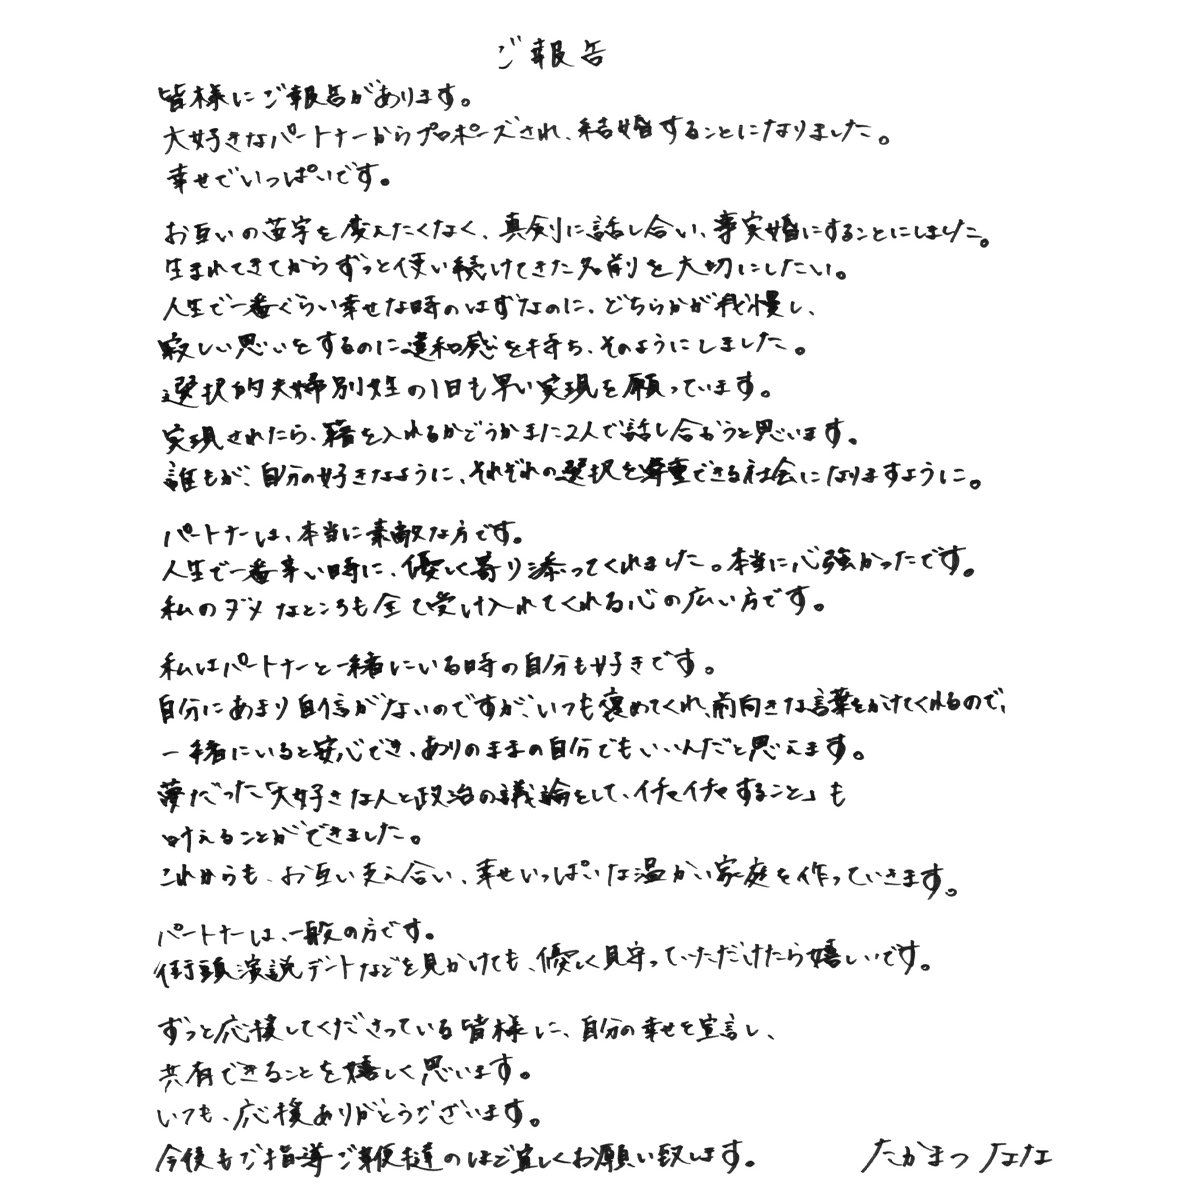 ご報告
皆様にご報告があります。
大好きなパートナーからプロポーズされ、結婚することになりました。
幸せでいっぱいです。
お互いの苗字を変えたくなく、真剣に話し合い、事実婚にすることにしました。
生まれてきてからずっと使い続けてきた名前を大切にしたい。
人生で一番ぐらい幸せな時のはずなのに、どちらかが我慢し、
寂しい思いをするのに違和感を持ち、そのようにしました。
選択的夫婦別姓の1日も早い実現を願っています。
実現されたら、籍を入れるかどうかまた2人で話し合おうと思います。
誰もが、自分の好きなように、それぞれの選択を尊重できる社会になりますように。
パートナーは、本当に素敵な方です。
人生で一番辛い時に、優しく寄り添ってくれました。本当に心強かったです。
私のダメなところも全て受け入れてくれる心の広い方です。
私はパートナーと一緒にいる時の自分も好きです。
自分にあまり自信がないのですが、いつも褒めてくれ、前向きな言葉をかけてくれるので、
一緒にいると安心でき、ありのままの自分でもいいんだと思えます。
夢だった「大好きな人と政治の議論をして、イチャイチャすること」も
叶えることができました。
これからも、お互い支え合い、幸せいっぱいな温かい家庭を作っていきます。
パートナーは、一般の方です。
街頭演説デートなどを見かけても、優しく見守っていただけたら嬉しいです。
ずっと応援してくださっている皆様に、自分の幸せを宣言し、
共有できることを嬉しく思います。
いつも、応援ありがとうございます。
今後もご指導ご鞭撻のほど宜しくお願い致します。 たかまつ なな